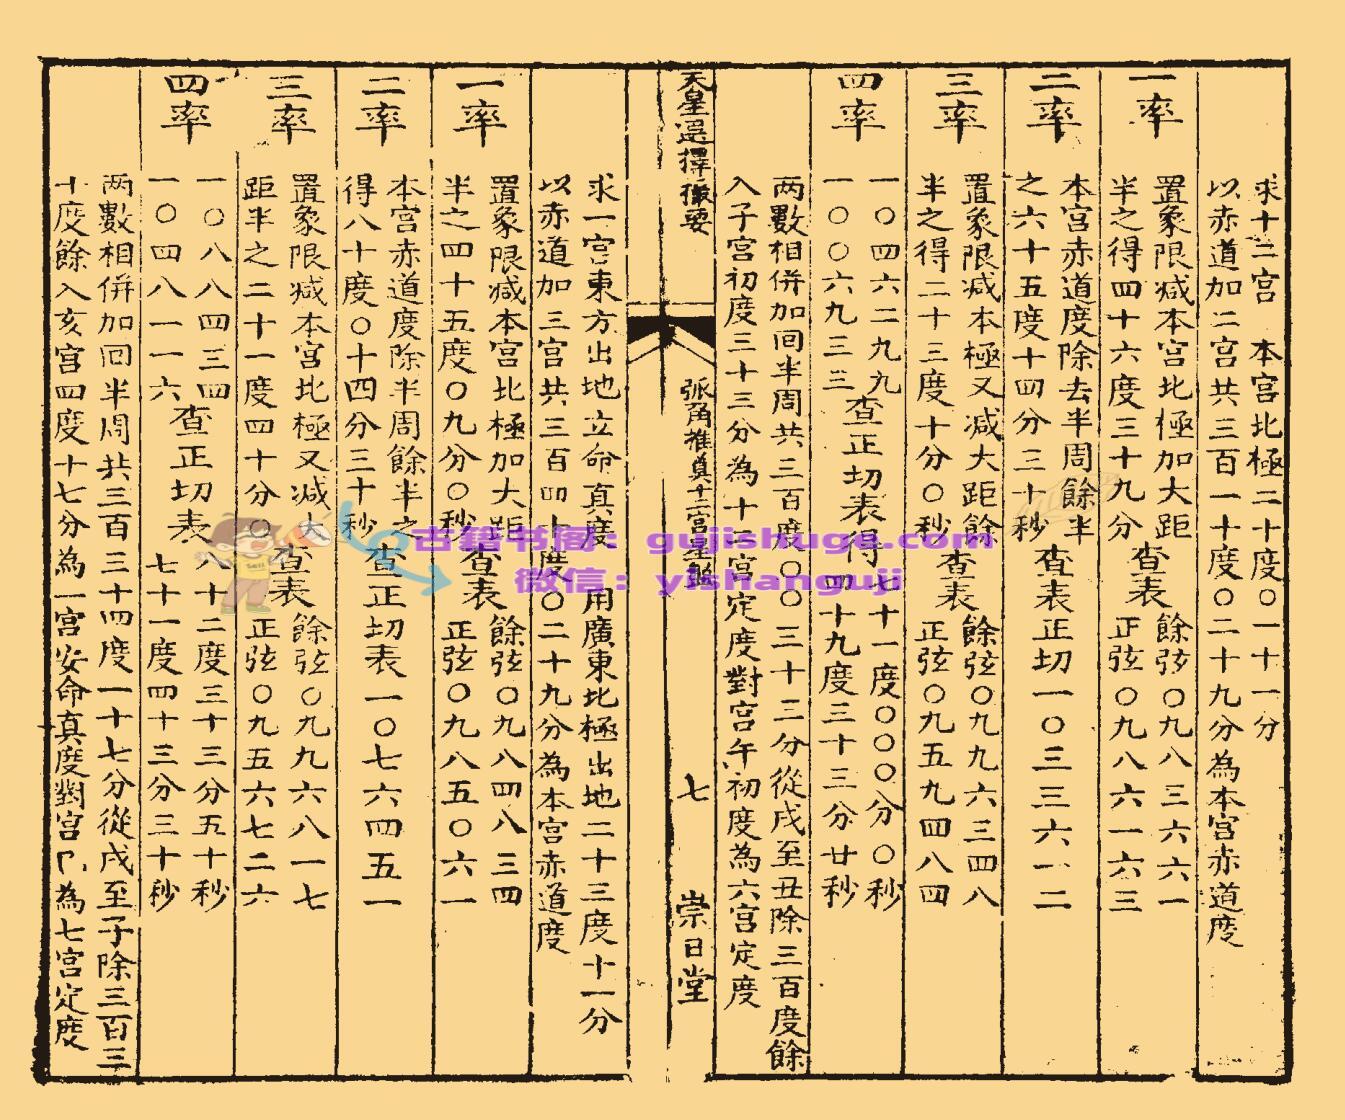 求十二宫　本宫北極二十度○一十一分
以赤道加二宫共三百一十度○二十九分為本宫赤道度
一率
置象限減本宫北極加大距
半之得四十六度三十九分
查表
餘弦○九八三六六一
正弦○九八六一六三
二率
本宫赤道度除去半周餘半
之六十五度十四分三十秒
查表正切一○三三六一二
三率
置象限減本極又減大距餘
半之得二十三度十分○秒
查表
餘弦○九九六三四八
正弦○九五九四八四
四率
一○四六二九九
一○○六九三三
查正切表得
七十一度○○○分○秒
四十九度三十三分廿秒
两數相併加回半周共三百度○○三十三分從戌至丑除三百度餘
入子宫初度三十三分為十二宫定度對宫午初度為六宫定度
天星選擇撮要
弧角推真十二宫星盤
七
崇日堂
求一宫東方出地立命真度　用廣東北極出地二十三度十一分
以赤道加三宫共三百四十度○二十九分為本宫赤道度
一率
置象限減本宫北極加大距
半之四十五度○九分○秒
查表
餘弦○九八四八三四
正弦○九八五○六一
二率
本宫赤道度除半周餘半之
得八十度○十四分三十秒
查正切表一○七六四五一
三率
置象限減本宫北極又減大
距半之二十一度四十分○
查表
餘弦○九九六八一七
正弦○九五六七二六
四率
一○八八四三四
一○四八一一六
查正切表
八十二度三十三分五十秒
七十一度四十三分三十秒
两數相併加回半周共三百三十四度一十七分從戌至子除三百三
十度餘入亥宫四度十七分為一宫安命真度對宫巳為七宫定度
古籍书阁：gujishuge.com
微信：yishanguji